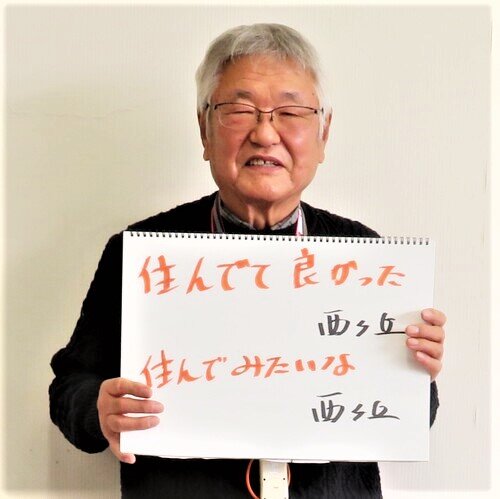 住んでて良かった
西ヶ丘
住んでみたいな
西ヶ丘